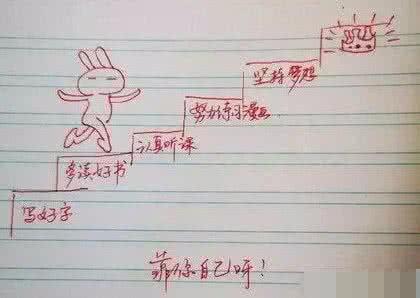 坚持梦想
努力练习漫画
认真听课
多读好书
写好字
靠你自己呀！